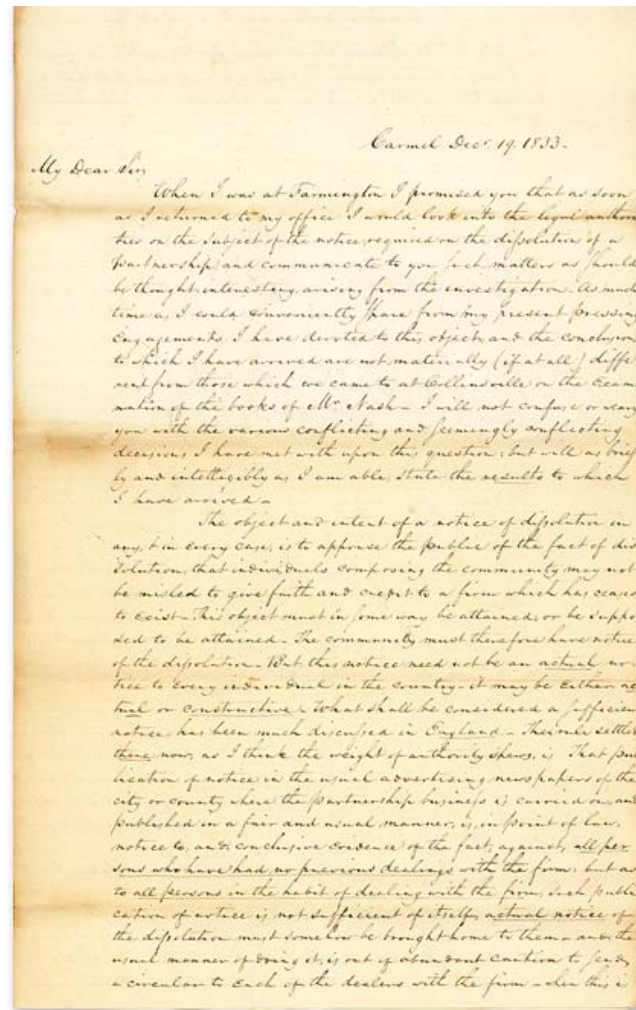 Carmel Decr. 19. 1833.
My Dear Sir,
When I was at Farmington I promised you that as soon
as I returned to my office I would look into the legal authori
ties on the subject of the notice required on the dissolution of a
partnership, and communicate to you such matters as should
be thought interesting arising from the investigation. As much
time as I could conveniently spare from my present pressing
engagements I have devoted to this object, and the conclusions
to which I have arrived are not materially (if at all) diffe
rent from those which we came to at Collinsville on the exam
ination of the books of Mr. Nash - I will not confuse or weary
you with the various conflicting and seemingly conflicting
decisions I have met with upon this question; but will as brief
ly and intelligibly as I am able, state the results to which
I have arrived -
The object and intent of a notice of dissolution in
any, & in every case, is to apprise the public of the fact of dis
solution, that individuals composing the community may not
be misled to give faith and credit to a firm which has ceased
to exist - This object must in some way be attained, or be suppo
sed to be attained - The community must therefore have notice
of the dissolution - But this notice need not be an actual no
tice to every individual in the country - it may be either ac
tual or constructive - What shall be considered a sufficient
notice has been much discussed in England - The rule settled
there now, as I think the weight of authority shews, is That pub
lication of notice in the usual advertising newspapers of the
city or county where the partnership business is carried on, and
published in a fair and usual manner, is, in point of law,
notice to, and conclusive evidence of the fact, against, all per
sons who have had no previous dealings with the firm: but as
to all persons in the habit of dealing with the firm, such publi
cation of notice is not sufficient of itself, actual notice of
the dissolution must somehow be brought home to them - and the
usual manner of doing it, is out of abundant caution to send
a circular to each of the dealers with the firm - when this is